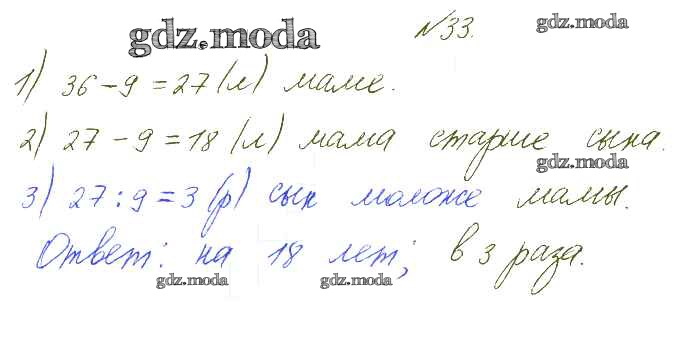 gdz.moda №33. gdz.moda
1) 36 - 9 = 27 (л) маме.
2) 27 - 9 = 18 (л) мама старше сына.
gdz.moda
3) 27 : 9 = 3 (р) сын моложе мамы.
Ответ: на 18 лет; в 3 раза.
gdz.moda gdz.moda